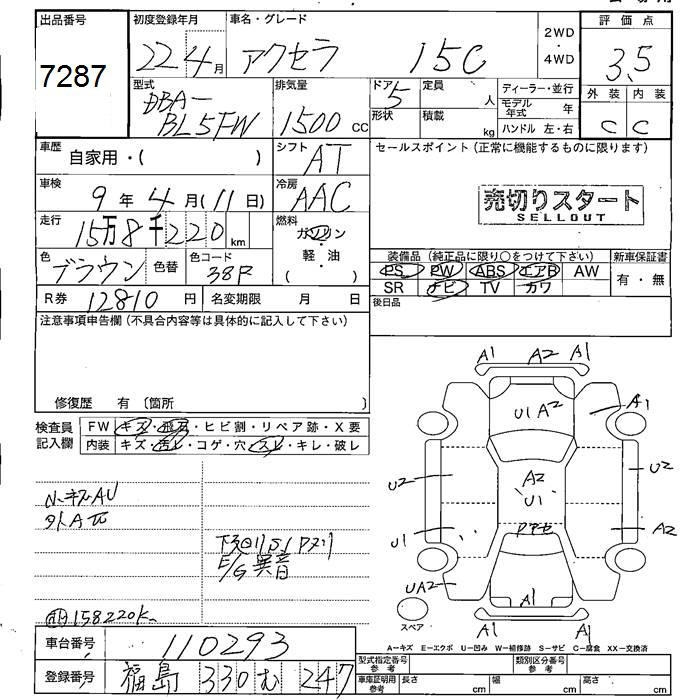 出品番号 初度登録年月 車名・グレード 2WD・4WD 評価点
7287 22 4月 アクセラ 15C 3.5
外装 内装
C C
型式 排気量 ドア 定員 ディーラー・並行
DBA-BL5FW 1500 cc 5 人 モデル年式 年
形状 積載 kg ハンドル 左・右
車歴 自家用・( ) シフト AT
セールスポイント(正常に機能するものに限ります)
車検 9年 4月(11日) 冷房 AAC
売切りスタート
SELLOUT
走行 15万8千220 km 燃料 ガソリン
軽・油
( )
色 ブラウン 色替 色コード 38P
装備品(純正品に限り○をつけて下さい) 新車保証書
PS PW ABS エアB AW 有・無
SR ナビ TV カワ
R券 12810 円 名変期限 月 日
後日品
注意事項申告欄(不具合内容等は具体的に記入して下さい)
修復歴 有 〔箇所 〕
検査員記入欄 FW キズ・飛石・ヒビ割・リペア跡・X要
内装 キズ・汚レ・コゲ・穴・スレ・キレ・破レ
小キズAU
下回りS
E/G異音
158220K
A1 A2 A1
U1 A2 A1
U2 A2 U1 U2
U1 A2
UA2 A1
A1 A1
スペア
A-キズ E-エクボ U-凹み W-補修跡 S-サビ C-腐食 XX-交換済
車台番号 110293
型式指定番号参考 類別区分番号参考
登録番号 福島 330 む 247
車庫証明用参考 長さ cm 幅 cm 高さ cm